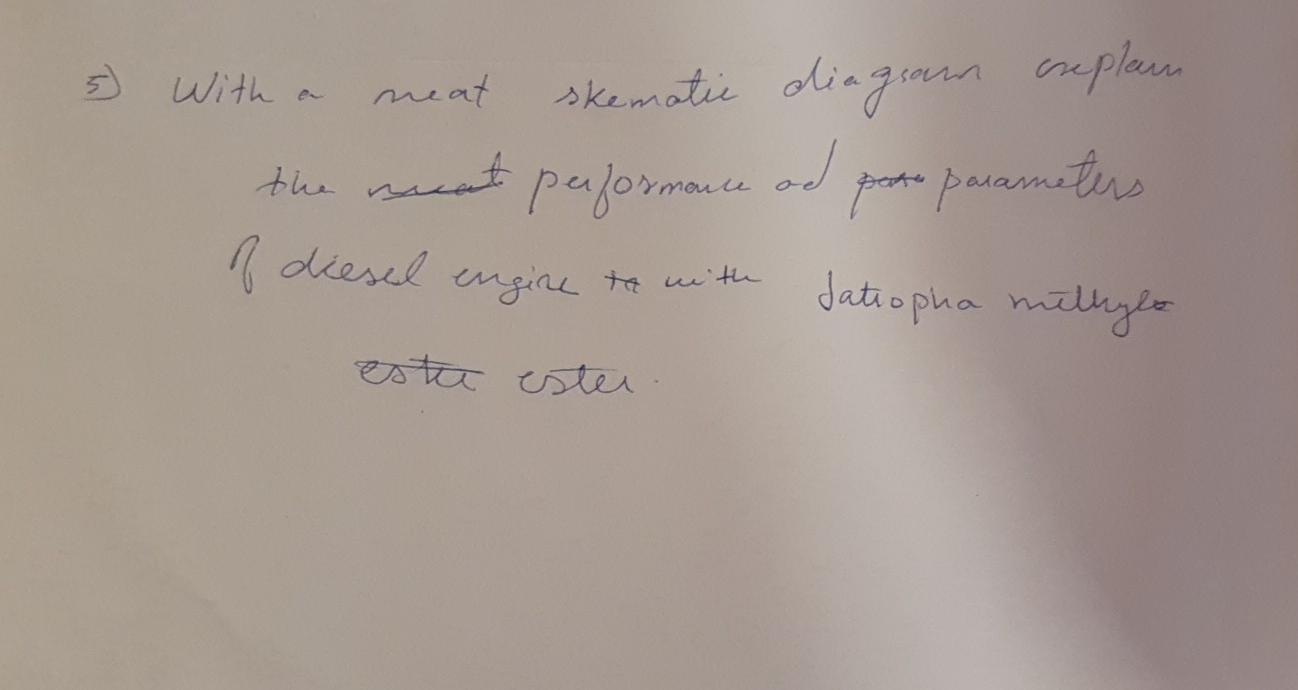 5) With a neat skematic diagram explain
the neat performance ad para parameters
of diesel engine to with Jatropha methyle
ester ester.